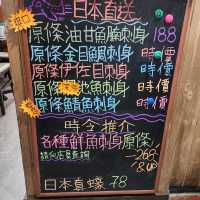 日本直送
原條油甘魚刺身 188
原條金目鯛刺身 時價
原條伊佐目刺身 時價
原條地魚刺身 時價
原條鯖魚刺身
時令推介
各種鮮魚刺身原條
268
& UP
日本直蠔 78